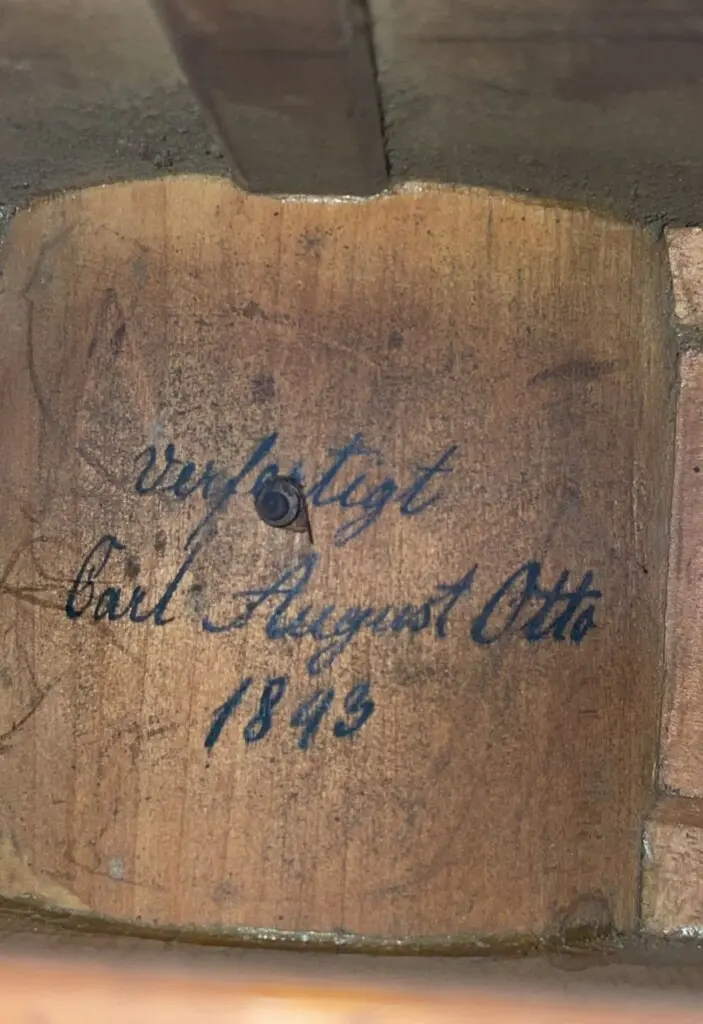 Verfertigt
Carl August Otto
1843